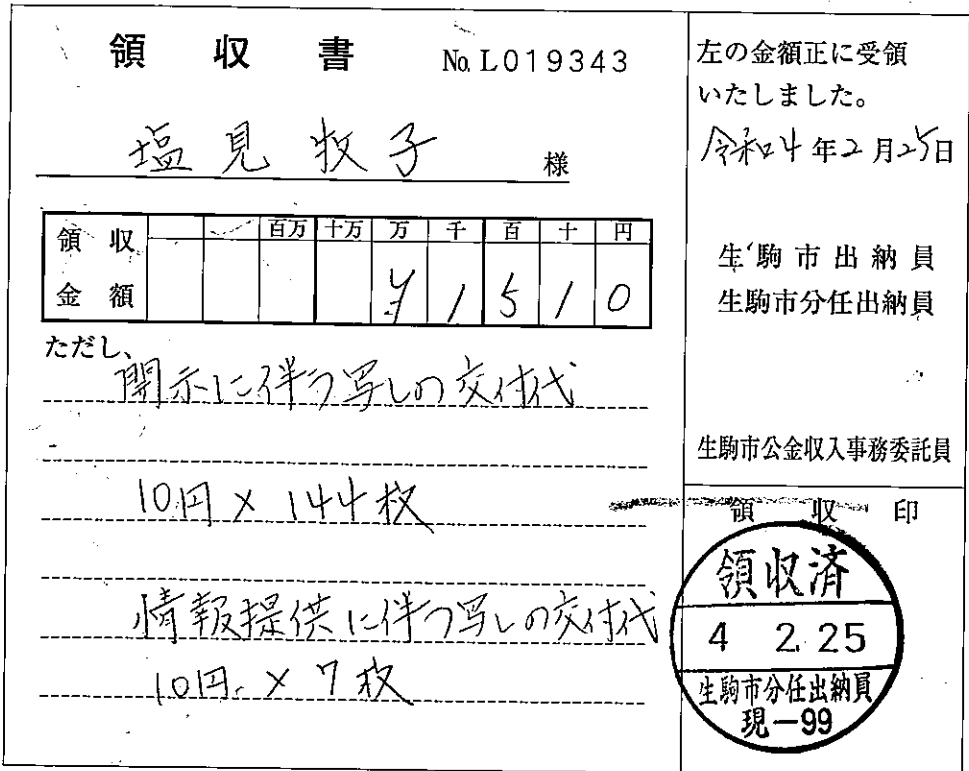 領収書 No.L019343
塩見牧子 様
領収金額 百万 十万 万 千 百 十 円
¥1510
ただし、
開示に伴う写しの交付代
10円×144枚
情報提供に伴う写しの交付代
10円×7枚
左の金額正に受領
いたしました。
令和4年2月25日
生駒市出納員
生駒市分任出納員
生駒市公金収入事務委託員
領収印
領収済
4 2.25
生駒市分任出納員
現-99